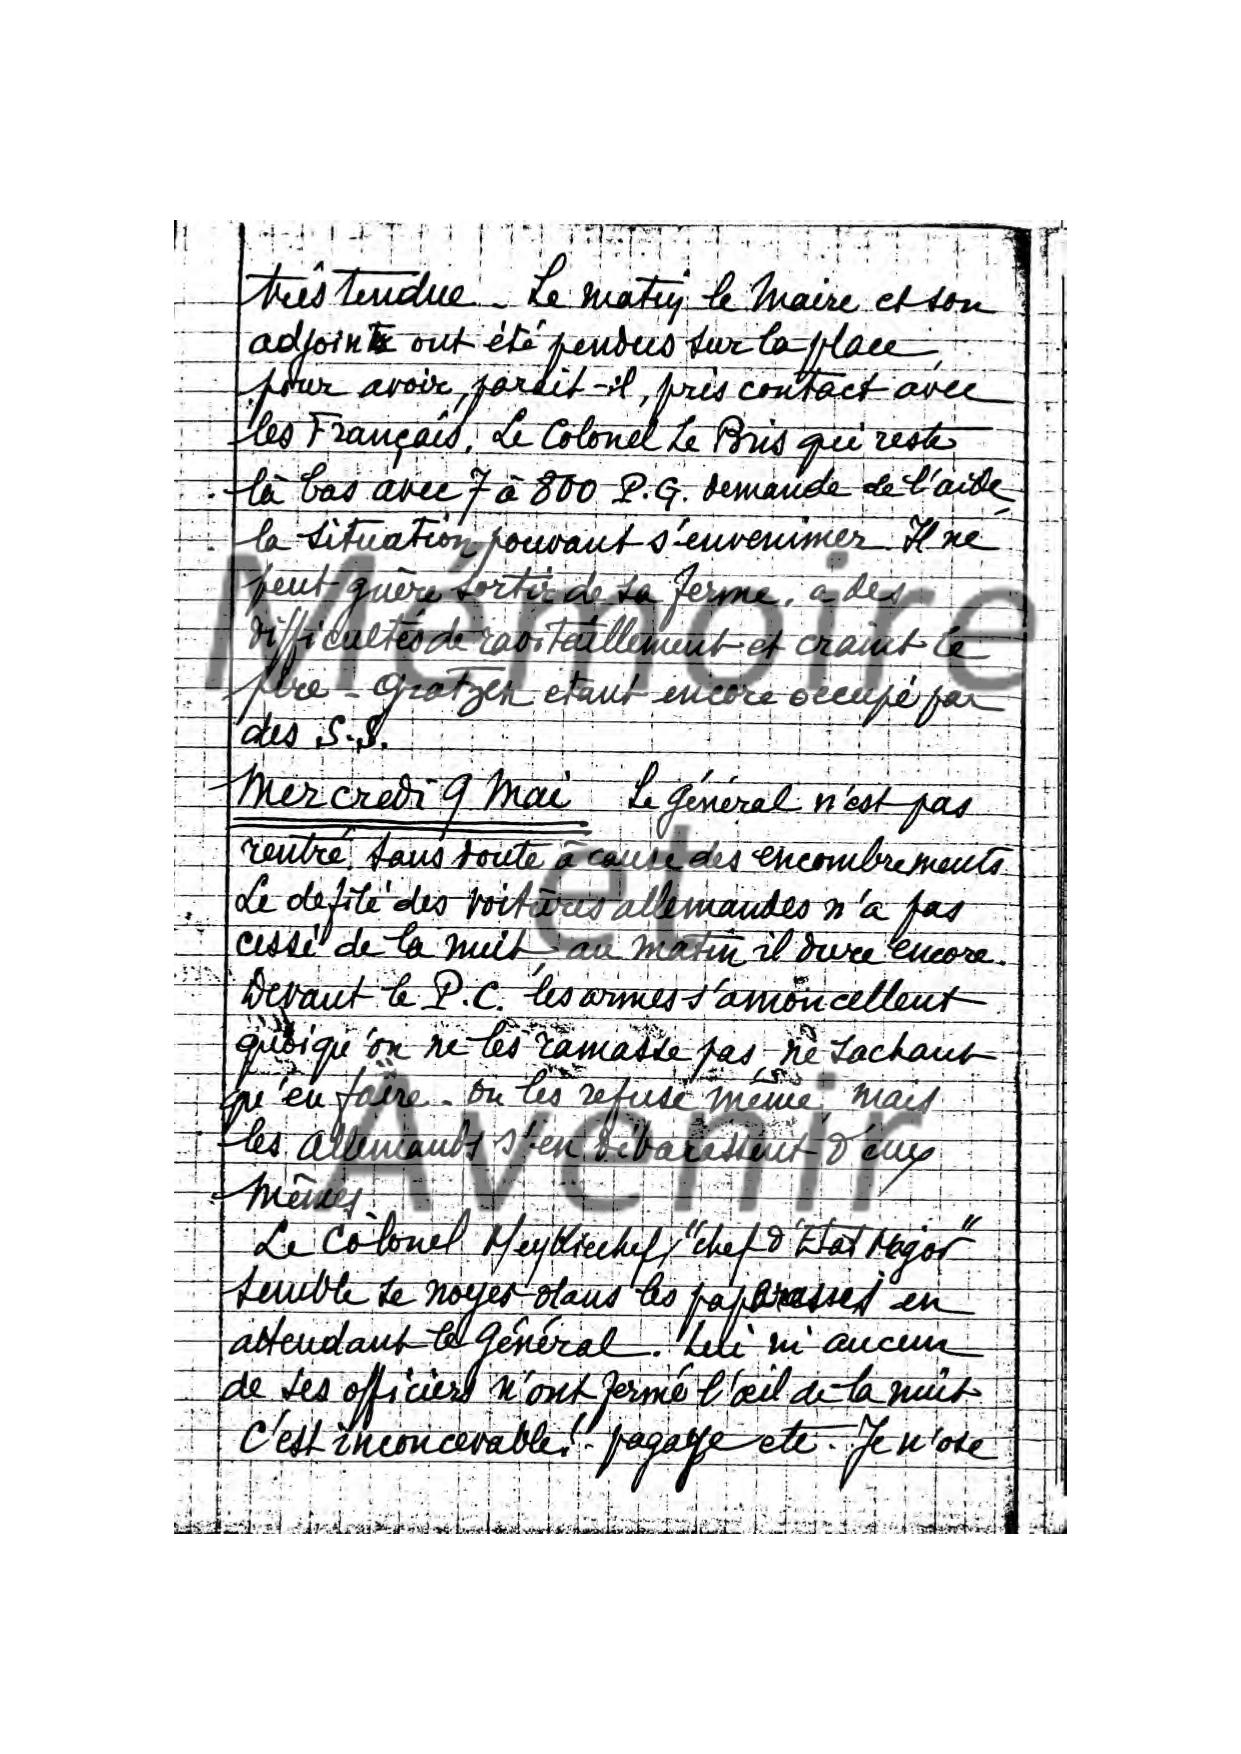 très tendue - Le matin le Maire et son
adjoint ont été pendus sur la place,
pour avoir, parait-il, pris contact avec
les Français. Le Colonel Le Bris qui reste
là bas avec 7 à 800 P.G. demande de l'aide,
la situation pouvant s'envenimer. Il ne
peut guère sortir de sa ferme, a des
difficultés de ravitaillement et craint le
pire - Gratzen etant encore occupé par
des S.S.
Mercredi 9 Mai Le Général n'est pas
rentré, sans doute à cause des encombrements
Le defilé des voitures allemandes n'a pas
cessé de la nuit, au matin il dure encore.
Devant le P.C. les armes s'amoncellent
quoiqu'on ne les ramasse pas, ne sachant
qu'en faire - on les refuse même, mais
les allemands s'en débarassent d'eux
mêmes.
Le Colonel "chef d'Etat Major"
semble se noyer dans les paperasses en
attendant le Général. Lui ni aucun
de ses officiers n'ont fermé l'œil de la nuit
C'est inconcevable! - pagaye etc. Je n'ose
Mémoire
et
Avenir